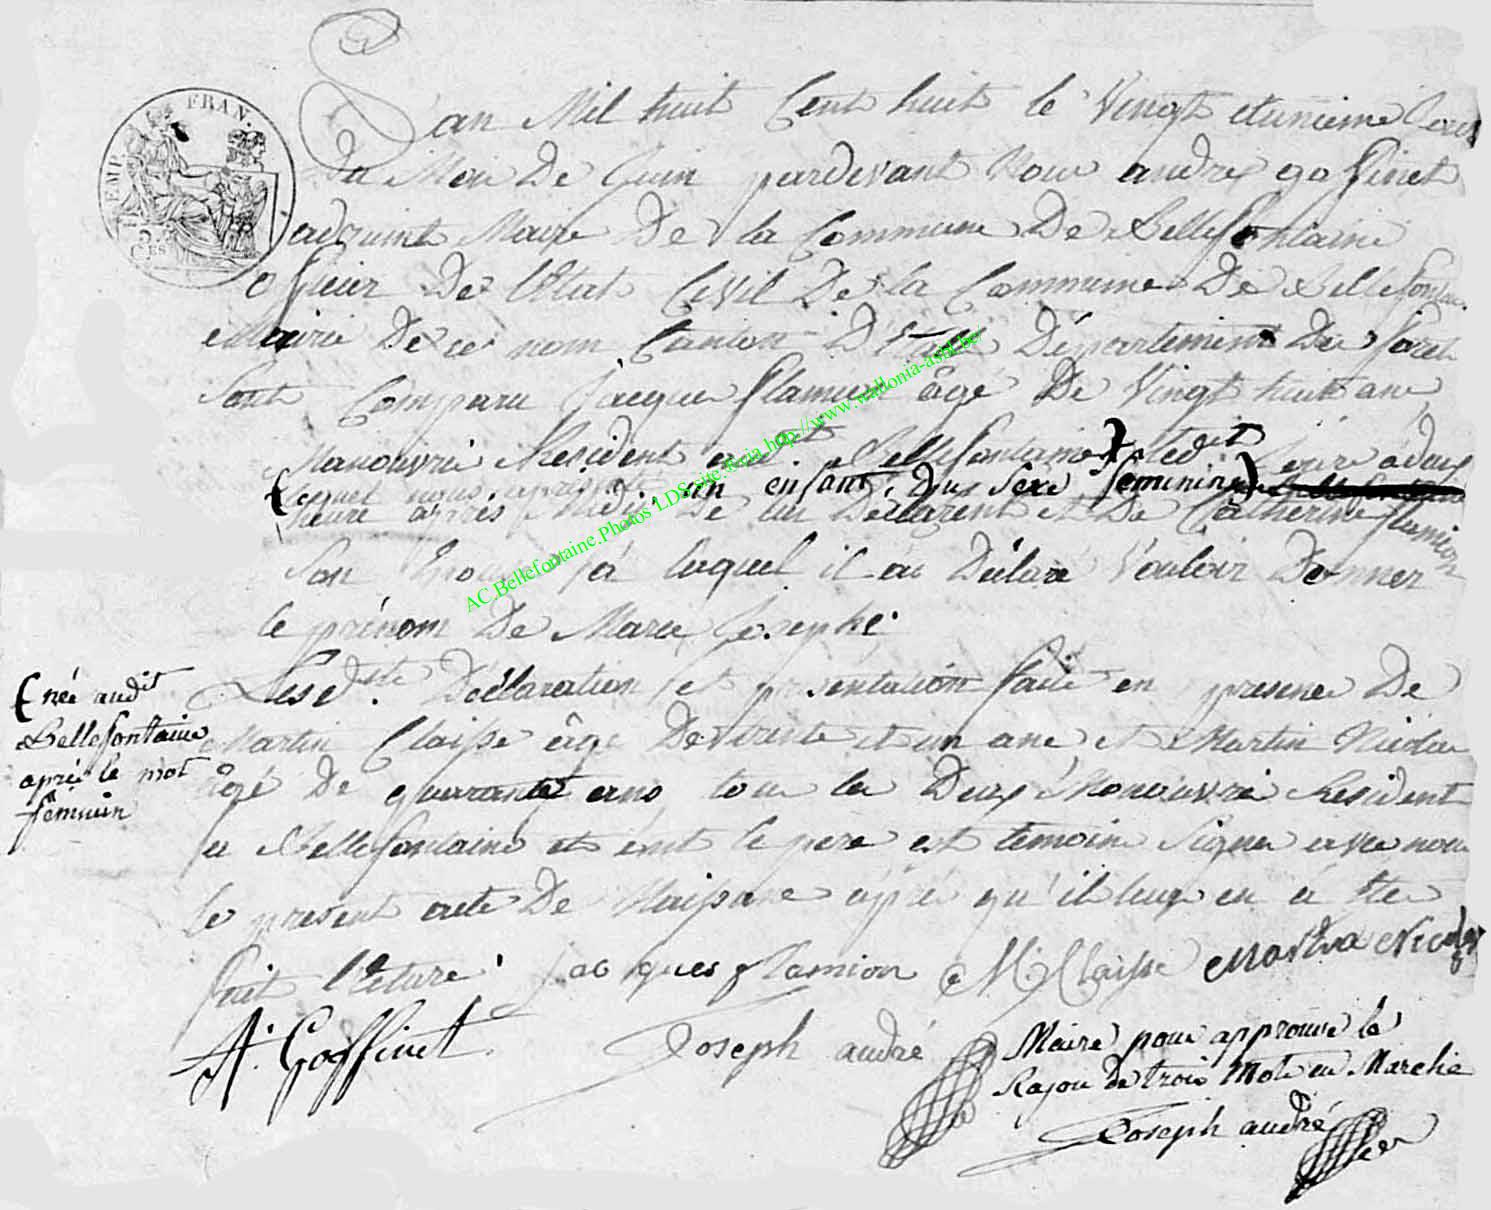 EMP. FRAN.
L'an Mil huit Cent huit le Vingt etunieme Jour
du Moi De Juin pardevant Nous andré goffinet
adjoint Maire De la Commune De Bellefontaine
officier De l'Etat Civil De la Commune De Bellefontaine
Mairie De ce nom Canton D'Etalle Département De Foret
Sont Comparu Jacque flamion âgé De Vingt huit ans
Manouvrié Resident audit Bellefontaine ledit Jour à deux
(lequel nous un enfant, du sexe feminin)
heure après Midi De lui Déclarent et De Catherine flamion
Son à laquel il à Déclaré Vouloir Donner
le prénom De Marie Josephe.
Lesdtte Déclaration et présentation faite en presence De
Martin Claisse âgé De trente et un ans et Martin Nicolas
âgé De quarante ans tou les Deux Manouvrié Resident
a Bellefontaine et ont le pere et temoin Signer avec nous
le present acte De Naissance après qu'il leur en à été
fait lecture. Jacques flamion M Claisse Martin Nicolas
A. Goffinet Joseph andré
Maire pour approuve le
Rajou de trois Mots en Marche
Joseph andré
(née audit
Bellefontaine
après le mot
féminin
AC.Bellefontaine.Photos LDS.site:Scia.http://www.wallonia-asbl.be